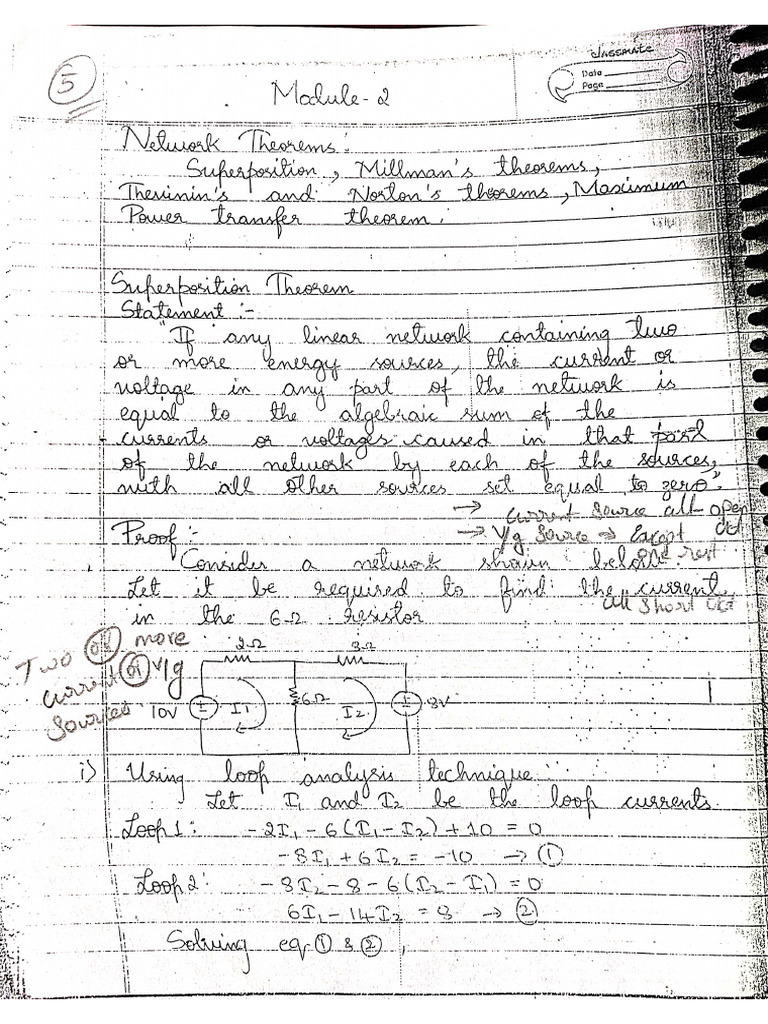 classmate
Date
Page
5
Module - 2
Network Theorems:
Superposition, Millman's theorems,
Thevinin's and Norton's theorems, Maximum
Power transfer theorem.
Superposition Theorem
Statement :-
"If any linear network containing two
or more energy sources, the current or
voltage in any part of the network is
equal to the algebraic sum of the
currents or voltages caused in that part
of the network by each of the sources,
with all other sources set equal to zero."
→ Current Source all - open ckt
Proof :-
→ V/g Source ⇒ Except one rest
all short ckt
Consider a network shown below.
Let it be required to find the current
in the 6Ω resistor
Two or more
current or V/g
Sources
2Ω 8Ω
10V I1 6Ω I2 8V
i) Using loop analysis technique
Let I1 and I2 be the loop currents.
Loop 1: -2I1 - 6(I1 - I2) + 10 = 0
-8I1 + 6I2 = -10 → ①
Loop 2: -8I2 - 8 - 6(I2 - I1) = 0
6I1 - 14I2 = 8 → ②
Solving eq ① & ②,